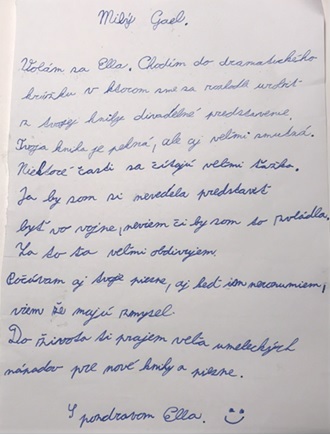 Milý Gael.
Volám sa Ella. Chodím do dramatického
krúžku v ktorom sme sa rozhodli urobiť
z tvojej knihy divadelné predstavenie.
Tvoja kniha je pekná, ale aj veľmi smutná.
Niektoré časti sa čítajú veľmi ťažko.
Ja by som si nevedela predstaviť
byť vo vojne, neviem či by som to zvládla.
Za to ťa veľmi obdivujem.
Počúvam aj tvoje piesne, aj keď im nerozumiem,
viem že majú zmysel.
Do života ti prajem veľa umeleckých
nápadov pre nové knihy a piesne.
S pozdravom Ella.